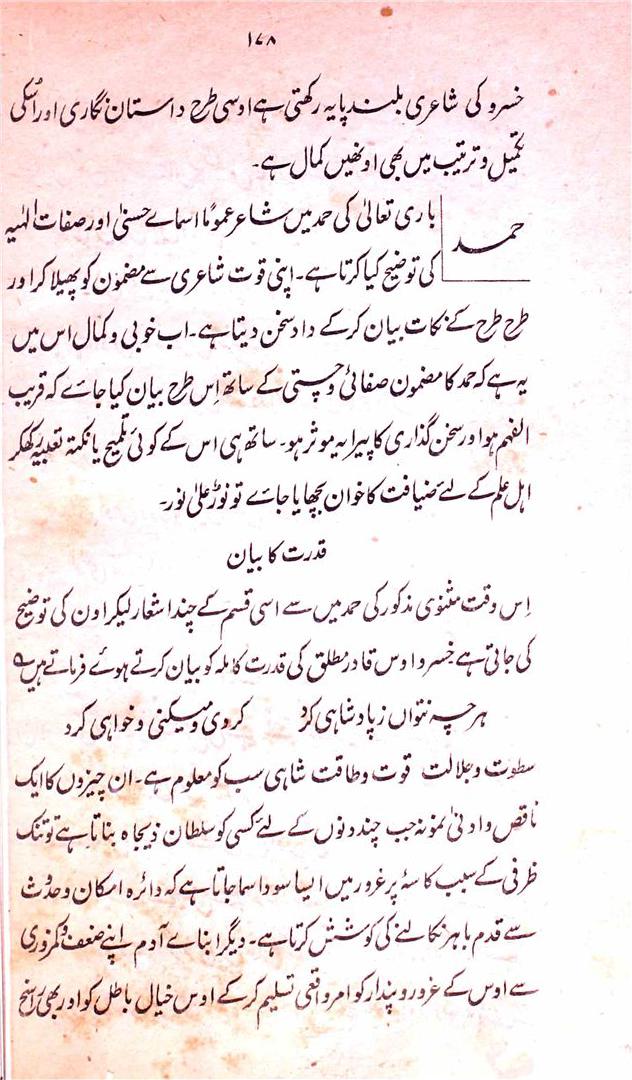 ۱۷۸
خسرو کی شاعری بلند پایہ رکھتی ہے اوسی طرح داستان نگاری اور اُسکی
تکمیل و ترتیب میں بھی اونھیں کمال ہے۔
حمد
باری تعالیٰ کی حمد میں شاعر عموماً اسماے حسنیٰ اور صفات الٰہیہ
کی توضیح کیا کرتا ہے۔ اپنی قوت شاعری سے مضمون کو پھیلا کر اور
طرح طرح کے نکات بیان کرکے داد سخن دیتا ہے۔ اب خوبی و کمال اس میں
یہ ہے کہ حمد کا مضمون صفائی و چستی کے ساتھ اِس طرح بیان کیا جاے کہ قریب
الفہم ہو اور سخن گذاری کا پیرایہ موثر ہو۔ ساتھ ہی اس کے کوئی تلمیح یا نکتہ تعبیہ رکھکر
اہل علم کے لئے ضیافت کا خوان بچھایا جاے تو نورٌ علیٰ نور۔
قدرت کا بیان
اِس وقت مثنوی مذکور کی حمد میں سے اسی قسم کے چند اشعار لیکر اون کی توضیح
کی جاتی ہے خسرو اوس قادر مطلق کی قدرت کاملہ کو بیان کرتے ہوئے فرماتے ہیں ؎
ہرچہ نتواں ز پادشاہی کرد کردی و میکنی و خواہی کرد
سطوت و جلالت قوت و طاقت شاہی سب کو معلوم ہے۔ ان چیزوں کا ایک
ناقص و ادنیٰ نمونہ جب چند دنوں کے لئے کسی کو سلطان ذیجاہ بناتا ہے تو تنک
ظرفی کے سبب کاسۂ پر غرور میں ایسا سودا سما جاتا ہے کہ دائرہ امکان و حدوث
سے قدم باہر نکالنے کی کوشش کرتا ہے۔ دیگر ابناے آدم اپنے ضعف و کمزوری
سے اوس کے غرور و پندار کو امر واقعی تسلیم کرکے اوس خیال باطل کو اور بھی راسخ